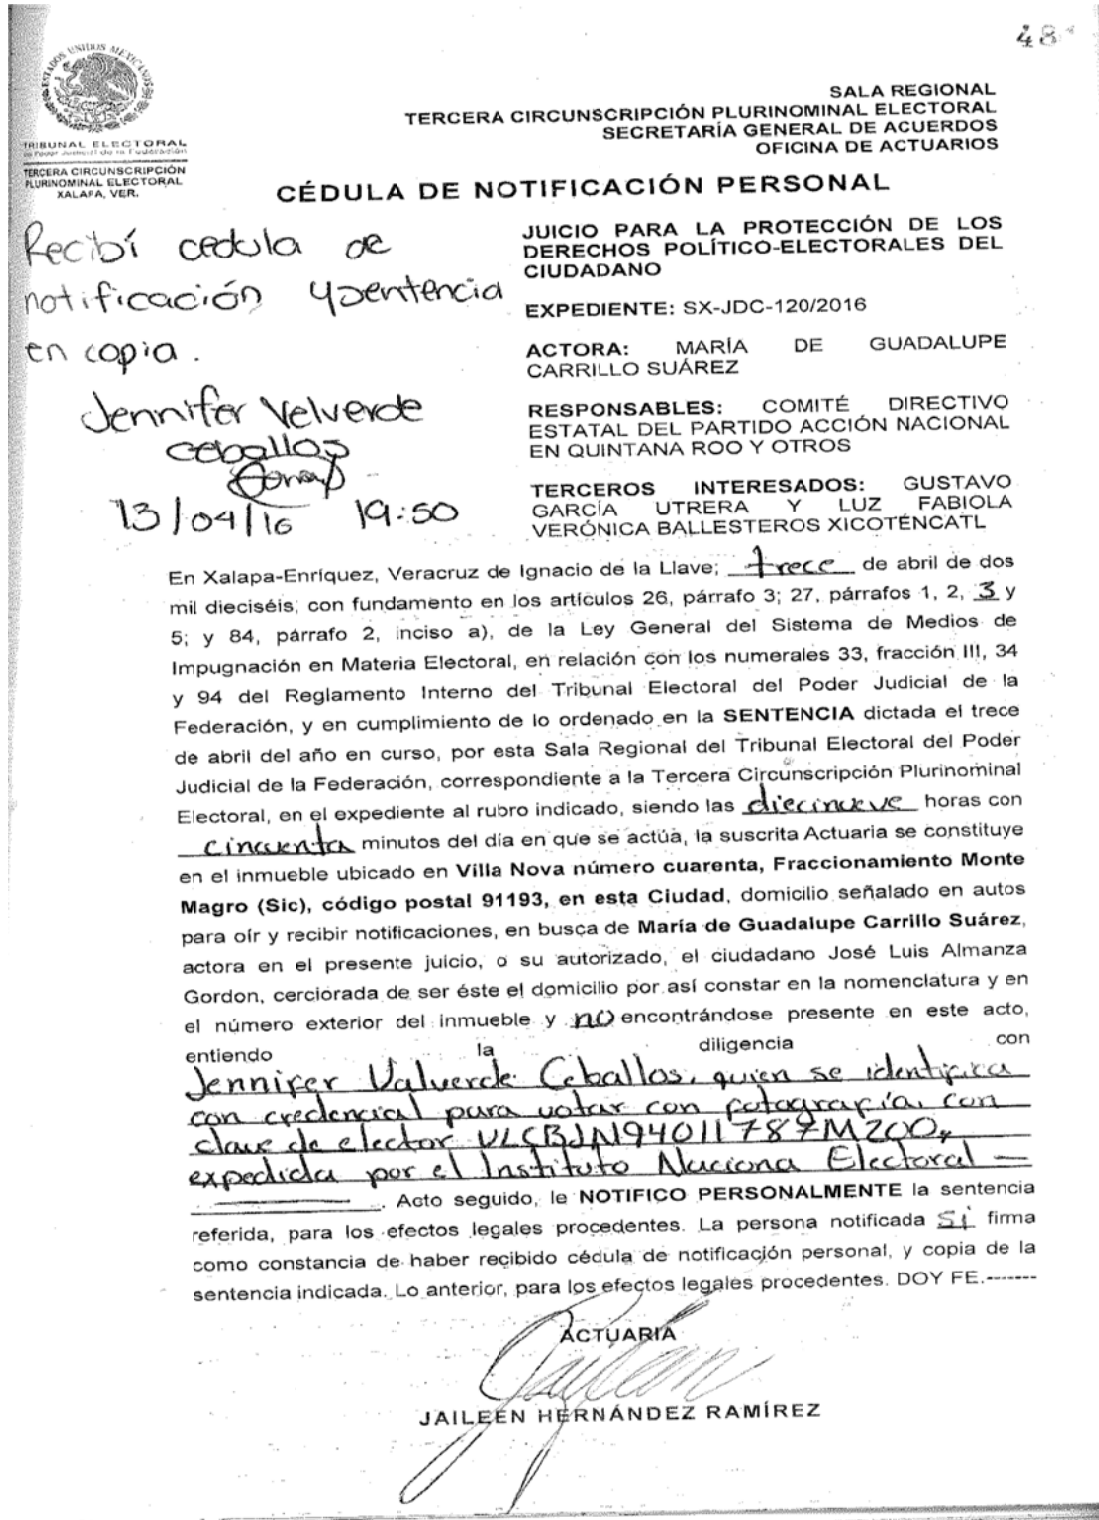 48
ESTADOS UNIDOS MEXICANOS
TRIBUNAL ELECTORAL
del Poder Judicial de la Federación
TERCERA CIRCUNSCRIPCIÓN
PLURINOMINAL ELECTORAL
XALAPA, VER.
SALA REGIONAL
TERCERA CIRCUNSCRIPCIÓN PLURINOMINAL ELECTORAL
SECRETARÍA GENERAL DE ACUERDOS
OFICINA DE ACTUARIOS
CÉDULA DE NOTIFICACIÓN PERSONAL
Recibí cedula de
notificación y sentencia
en copia.
Jennifer Velverde
ceballos
13/04/16 19:50
JUICIO PARA LA PROTECCIÓN DE LOS
DERECHOS POLÍTICO-ELECTORALES DEL
CIUDADANO
EXPEDIENTE: SX-JDC-120/2016
ACTORA: MARÍA DE GUADALUPE
CARRILLO SUÁREZ
RESPONSABLES: COMITÉ DIRECTIVO
ESTATAL DEL PARTIDO ACCIÓN NACIONAL
EN QUINTANA ROO Y OTROS
TERCEROS INTERESADOS: GUSTAVO
GARCÍA UTRERA Y LUZ FABIOLA
VERÓNICA BALLESTEROS XICOTÉNCATL
En Xalapa-Enríquez, Veracruz de Ignacio de la Llave; trece de abril de dos
mil dieciséis; con fundamento en los artículos 26, párrafo 3; 27, párrafos 1, 2, 3 y
5; y 84, párrafo 2, inciso a), de la Ley General del Sistema de Medios de
Impugnación en Materia Electoral, en relación con los numerales 33, fracción III, 34
y 94 del Reglamento Interno del Tribunal Electoral del Poder Judicial de la
Federación, y en cumplimiento de lo ordenado en la SENTENCIA dictada el trece
de abril del año en curso, por esta Sala Regional del Tribunal Electoral del Poder
Judicial de la Federación, correspondiente a la Tercera Circunscripción Plurinominal
Electoral, en el expediente al rubro indicado, siendo las diecinueve horas con
cincuenta minutos del día en que se actúa, la suscrita Actuaria se constituye
en el inmueble ubicado en Villa Nova número cuarenta, Fraccionamiento Monte
Magro (Sic), código postal 91193, en esta Ciudad, domicilio señalado en autos
para oír y recibir notificaciones, en busca de María de Guadalupe Carrillo Suárez,
actora en el presente juicio, o su autorizado, el ciudadano José Luis Almanza
Gordon, cerciorada de ser éste el domicilio por así constar en la nomenclatura y en
el número exterior del inmueble y no encontrándose presente en este acto,
entiendo la diligencia con
Jennifer Valverde Ceballos, quien se identifica
con credencial para votar con fotografía, con
clave de elector VLCBJN94011787M200,
expedida por el Instituto Naciona Electoral —
. Acto seguido, le NOTIFICO PERSONALMENTE la sentencia
referida, para los efectos legales procedentes. La persona notificada Sí firma
como constancia de haber recibido cédula de notificación personal, y copia de la
sentencia indicada. Lo anterior, para los efectos legales procedentes. DOY FE.-------
ACTUARIA
JAILEEN HERNÁNDEZ RAMÍREZ